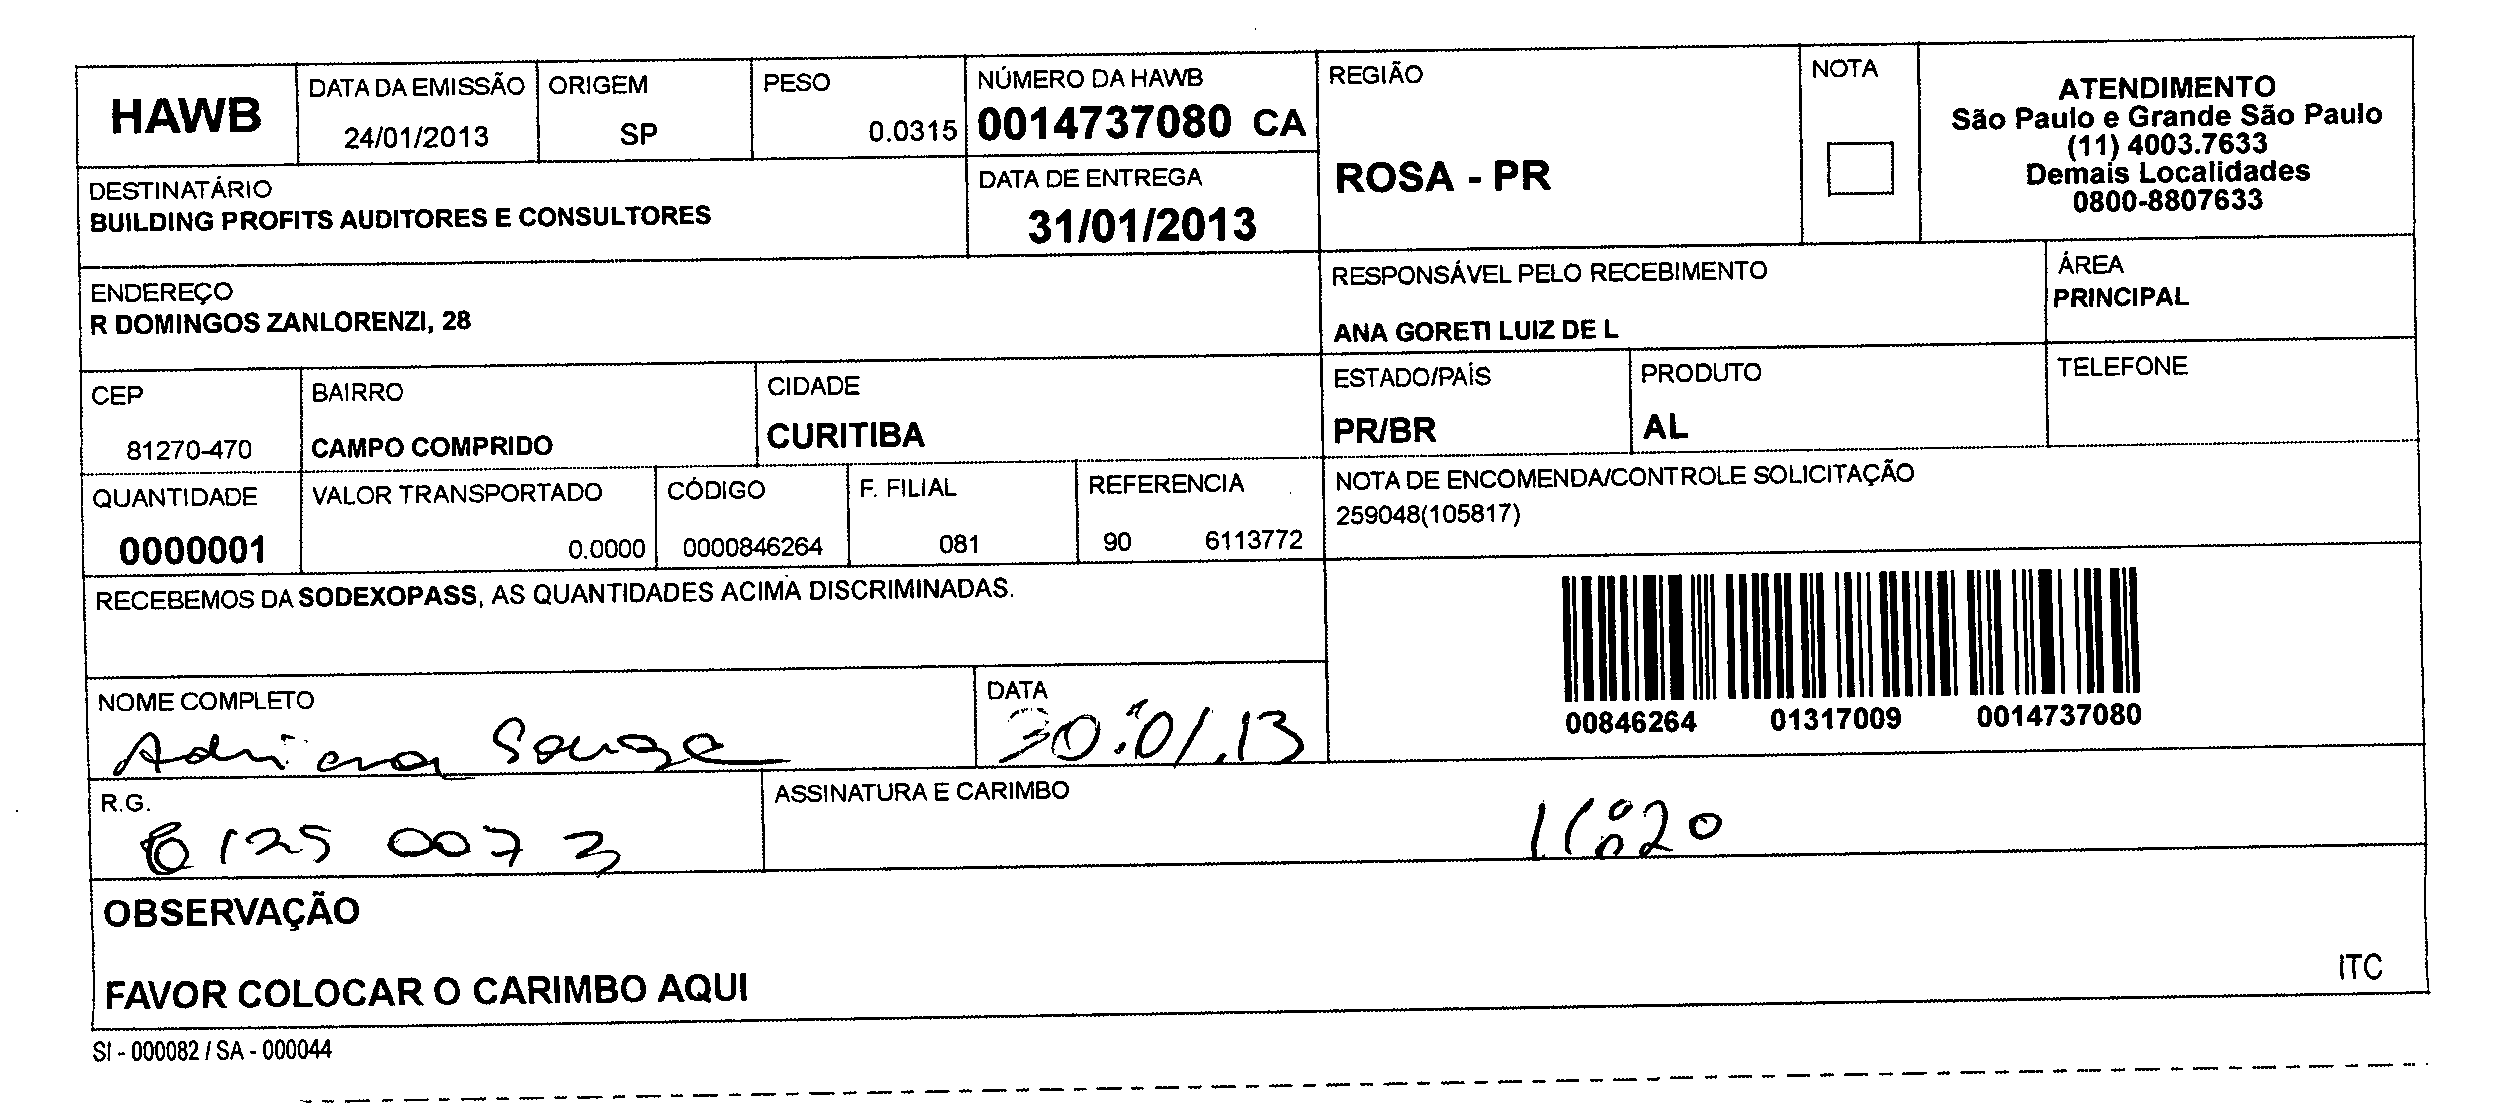 HAWB
DATA DA EMISSÃO
24/01/2013
ORIGEM
SP
PESO
0.0315
NÚMERO DA HAWB
0014737080 CA
REGIÃO
ROSA - PR
NOTA
ATENDIMENTO
São Paulo e Grande São Paulo
(11) 4003.7633
Demais Localidades
0800-8807633
DESTINATÁRIO
BUILDING PROFITS AUDITORES E CONSULTORES
DATA DE ENTREGA
31/01/2013
ENDEREÇO
R DOMINGOS ZANLORENZI, 28
RESPONSÁVEL PELO RECEBIMENTO
ANA GORETI LUIZ DE L
ÁREA
PRINCIPAL
CEP
81270-470
BAIRRO
CAMPO COMPRIDO
CIDADE
CURITIBA
ESTADO/PAÍS
PR/BR
PRODUTO
AL
TELEFONE
QUANTIDADE
0000001
VALOR TRANSPORTADO
0.0000
CÓDIGO
0000846264
F. FILIAL
081
REFERENCIA
90 6113772
NOTA DE ENCOMENDA/CONTROLE SOLICITAÇÃO
259048(105817)
RECEBEMOS DA SODEXOPASS, AS QUANTIDADES ACIMA DISCRIMINADAS.
00846264 01317009 0014737080
NOME COMPLETO
Adriana Souza
DATA
30.01.13
R.G.
6125 007 3
ASSINATURA E CARIMBO
11:20
OBSERVAÇÃO
FAVOR COLOCAR O CARIMBO AQUI
ITC
SI - 000082 / SA - 000044